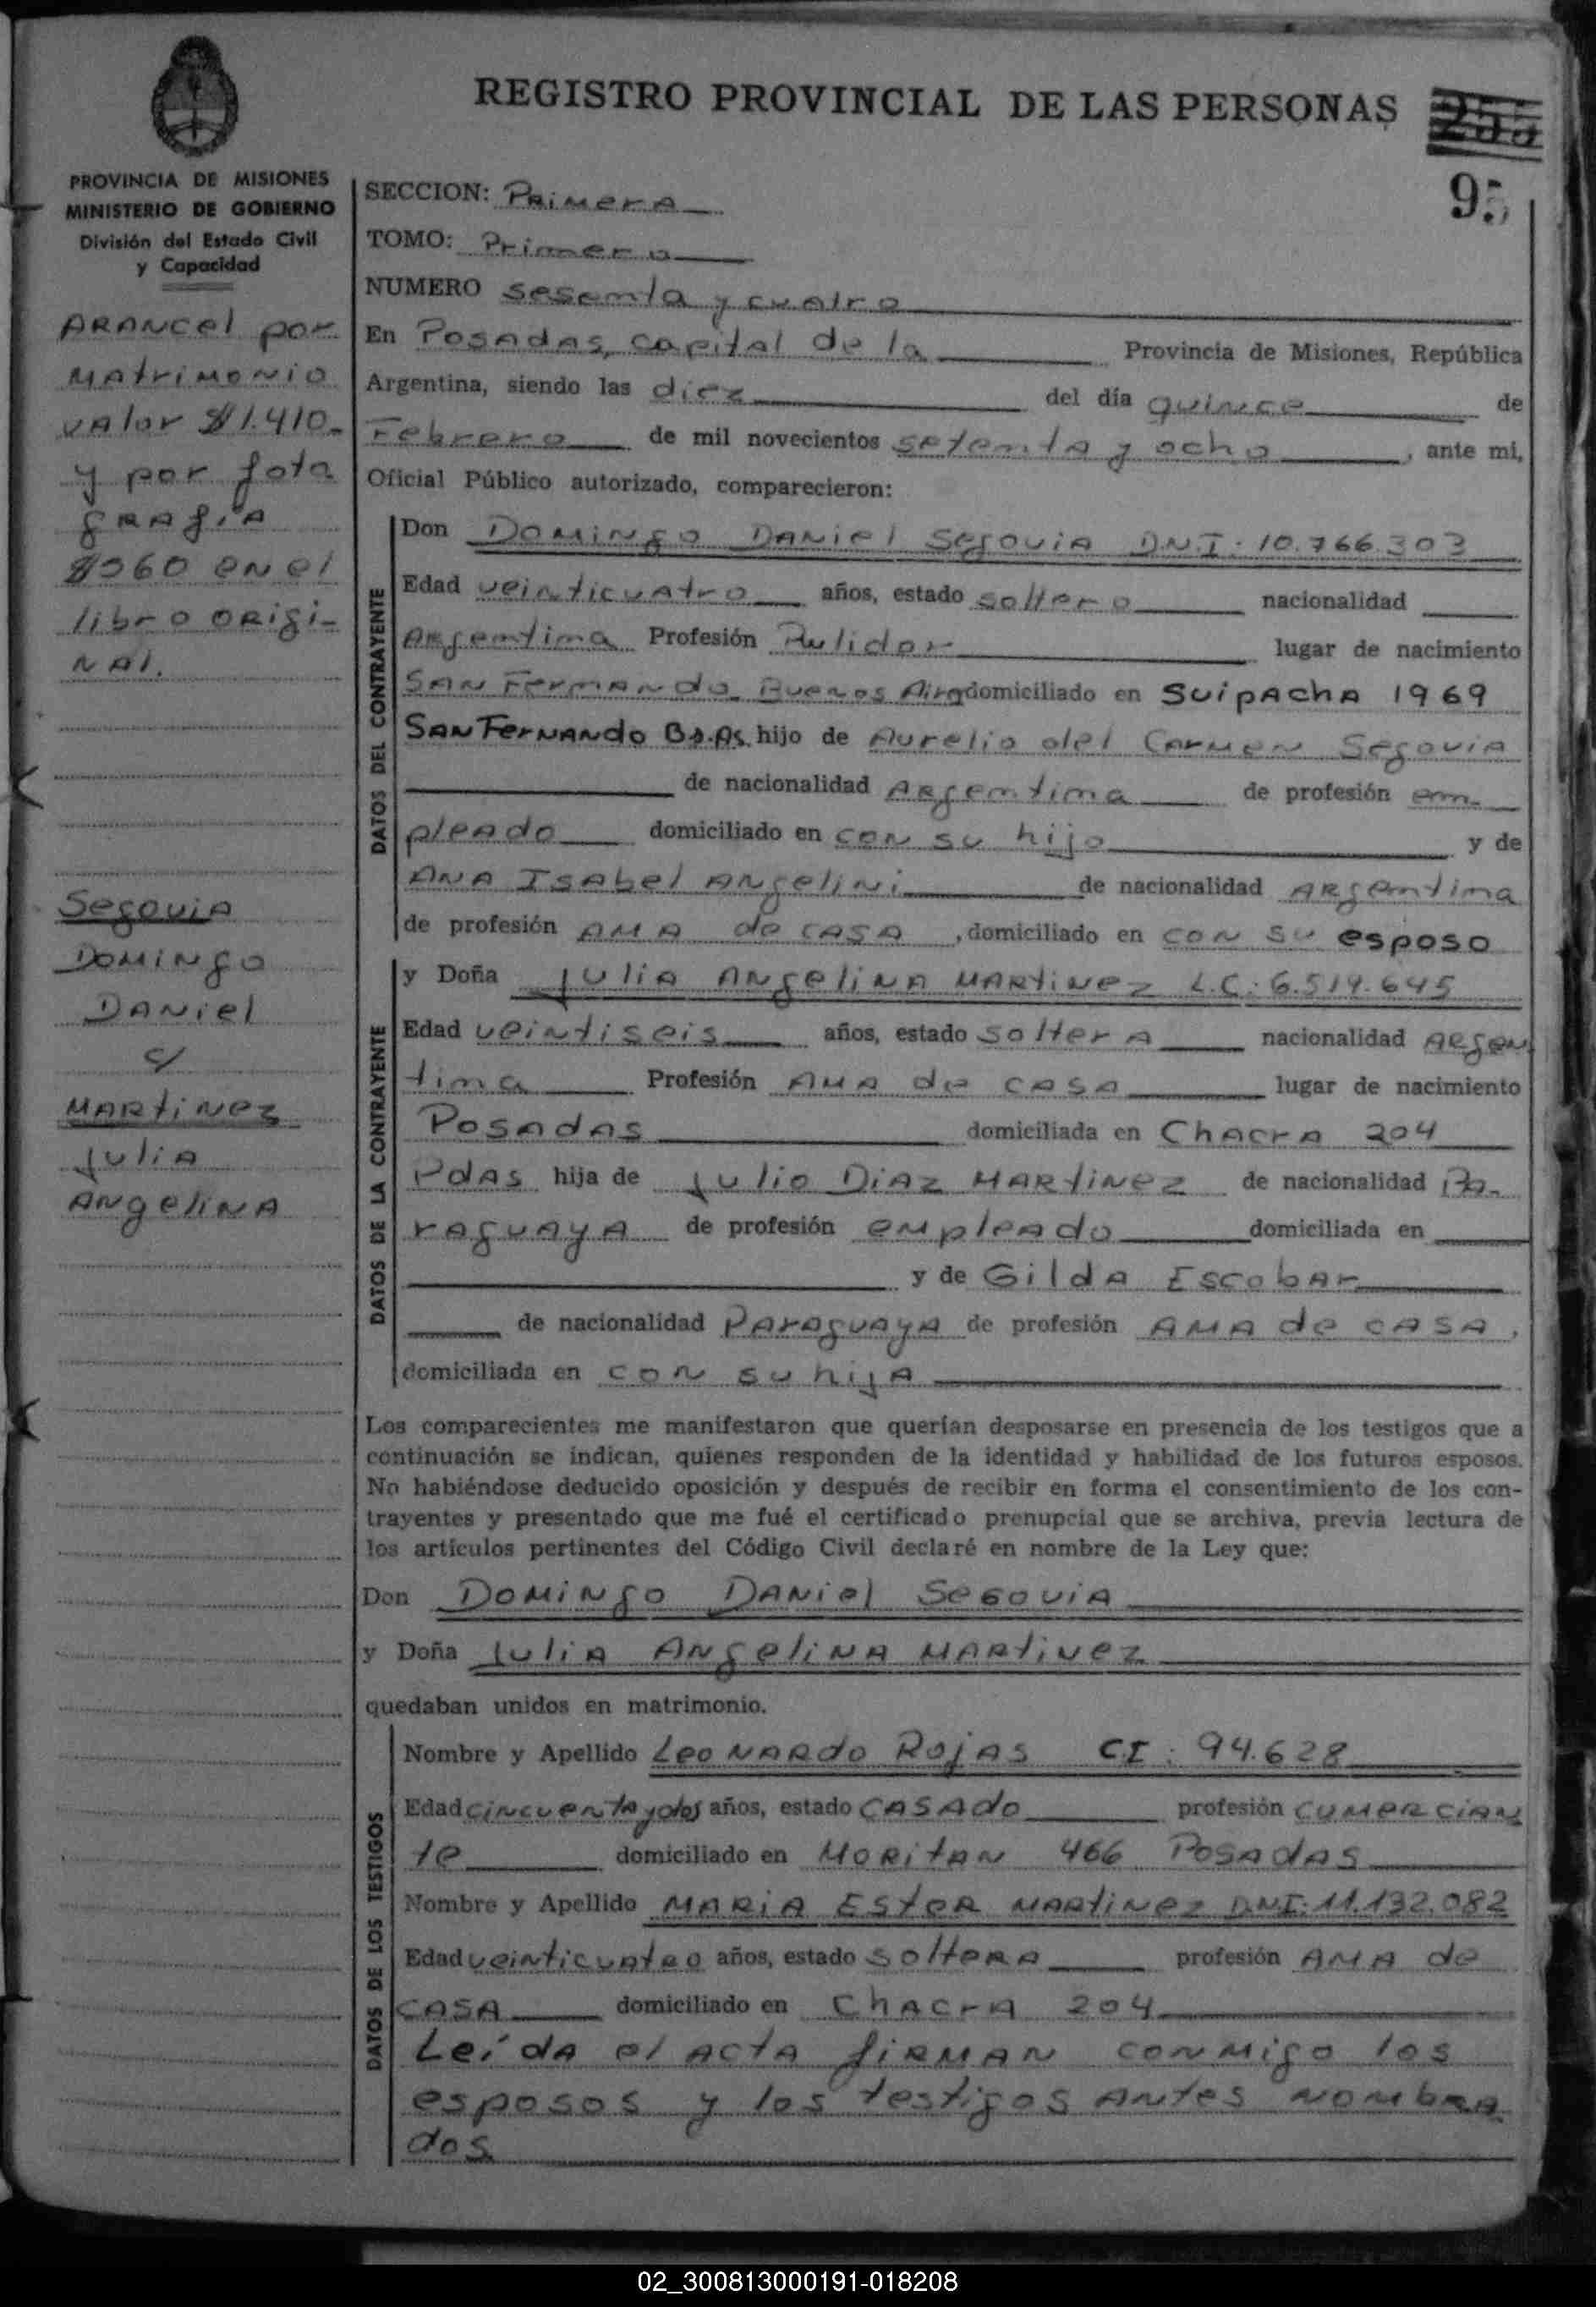 REGISTRO PROVINCIAL DE LAS PERSONAS
255
95
PROVINCIA DE MISIONES
MINISTERIO DE GOBIERNO
División del Estado Civil
y Capacidad
ARANCel por
MAtriMONiO
VAlor $1.410.-
y por foto
gRAfiA
$360 eN el
libro ORigi-
NAl.
SegoviA
DOMiNgO
DANiel
c/
MARtiNez
JuliA
ANgeliNA
SECCION: PRiMeRA
TOMO: Primero
NUMERO sesenta y cuatro
En PosAdAs, cApitAl de la Provincia de Misiones, República
Argentina, siendo las diez del día quince de
Febrero de mil novecientos setenta y ocho, ante mi,
Oficial Público autorizado, comparecieron:
DATOS DEL CONTRAYENTE
Don DOMiNgO DANiel SegoviA D.N.I: 10.766.303
Edad veinticuAtro años, estado soltero nacionalidad
ARgentina Profesión Pulidor lugar de nacimiento
SAN FerNANdo BueNos Aires domiciliado en SuipAchA 1969
SAN FerNANdo Bs.As. hijo de Aurelio del CarMeN SegoviA
de nacionalidad ARgentina de profesión em-
pleAdo domiciliado en coN su hijo y de
ANA ISAbel ANgeliNi de nacionalidad ARgentina
de profesión AMA de CASA, domiciliado en coN su esposo
DATOS DE LA CONTRAYENTE
y Doña JuliA ANgeliNA MARtiNez L.C: 6.519.645
Edad veiNtiseis años, estado solterA nacionalidad ARgen
tina Profesión AMA de CASA lugar de nacimiento
PosAdAs domiciliada en ChAcrA 204
PdAs hija de Julio DiAz MARtiNez de nacionalidad PA-
rAguAyA de profesión eMpleAdo domiciliada en
y de GildA EscobAr
de nacionalidad PArAguAyA de profesión AMA de CASA,
domiciliada en coN su hijA
Los comparecientes me manifestaron que querían desposarse en presencia de los testigos que a
continuación se indican, quienes responden de la identidad y habilidad de los futuros esposos.
No habiéndose deducido oposición y después de recibir en forma el consentimiento de los con-
trayentes y presentado que me fué el certificado prenupcial que se archiva, previa lectura de
los artículos pertinentes del Código Civil declaré en nombre de la Ley que:
Don DOMiNgO DANiel SegoviA
y Doña JuliA ANgeliNA MARtiNez
quedaban unidos en matrimonio.
DATOS DE LOS TESTIGOS
Nombre y Apellido LeoNARdo RojAs C.I: 94.628
Edad ciNcueNtA y dos años, estado CASAdo profesión COMeRCiAN
te domiciliado en MORitAN 466 PosAdAs
Nombre y Apellido MARiA ESteR MARtiNez D.N.I: 11.132.082
Edad veiNticuAtro años, estado solteRA profesión AMA de
CASA domiciliado en ChAcrA 204
LeídA el ActA fiRMAN coNMigo los
esposos y los testigos ANtes NoMbRA
dos
02_300813000191-018208